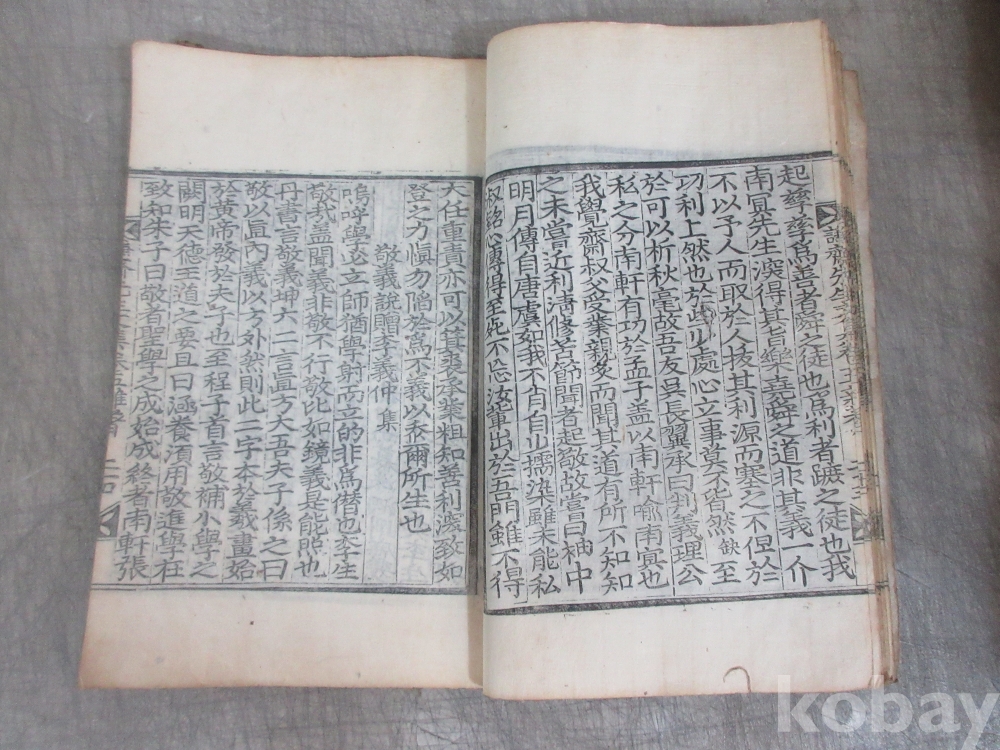 起孶孶爲善者舜之徒也爲利者蹠之徒也我
南冥先生深得其旨樂堯舜之道非其義一介
不以予人而取於人核其利源而塞之不但於
切利上然也於此処處心立事莫不皆然缺至
於可以析秋毫故吾友吳長翼承曰判義理公
私之分南軒有功於孟子盖以南軒喻南冥也
我覺齋叔父受業親炙而聞其道有所不知知
之未嘗近利淸修苦節聞者起敬故嘗曰袖中
明月傳自唐虞如我不肖自少擩染雖未能私
叔銘心傳得至死不忘汝輩出於吾門雖不得
大任重責亦可以箕裘承業粗知善利濃致如
登之方愼勿陷於爲不義以忝爾所生也
敬義說贈李義仲集
嗚呼學必立師猶學射而立的非爲僭也李生
敬義盖聞義非敬不行敬比如鏡義是能照也
丹書言敬義坤六二言直方大吾夫子係之曰
敬以直內義以方外然則此二字本於羲畫始
於黃帝發於夫子也至程子首言敬補小學之
闕明天德王道之要且曰涵養須用敬進學在
致知朱子曰敬者聖學之成始成終者南軒張
kobay